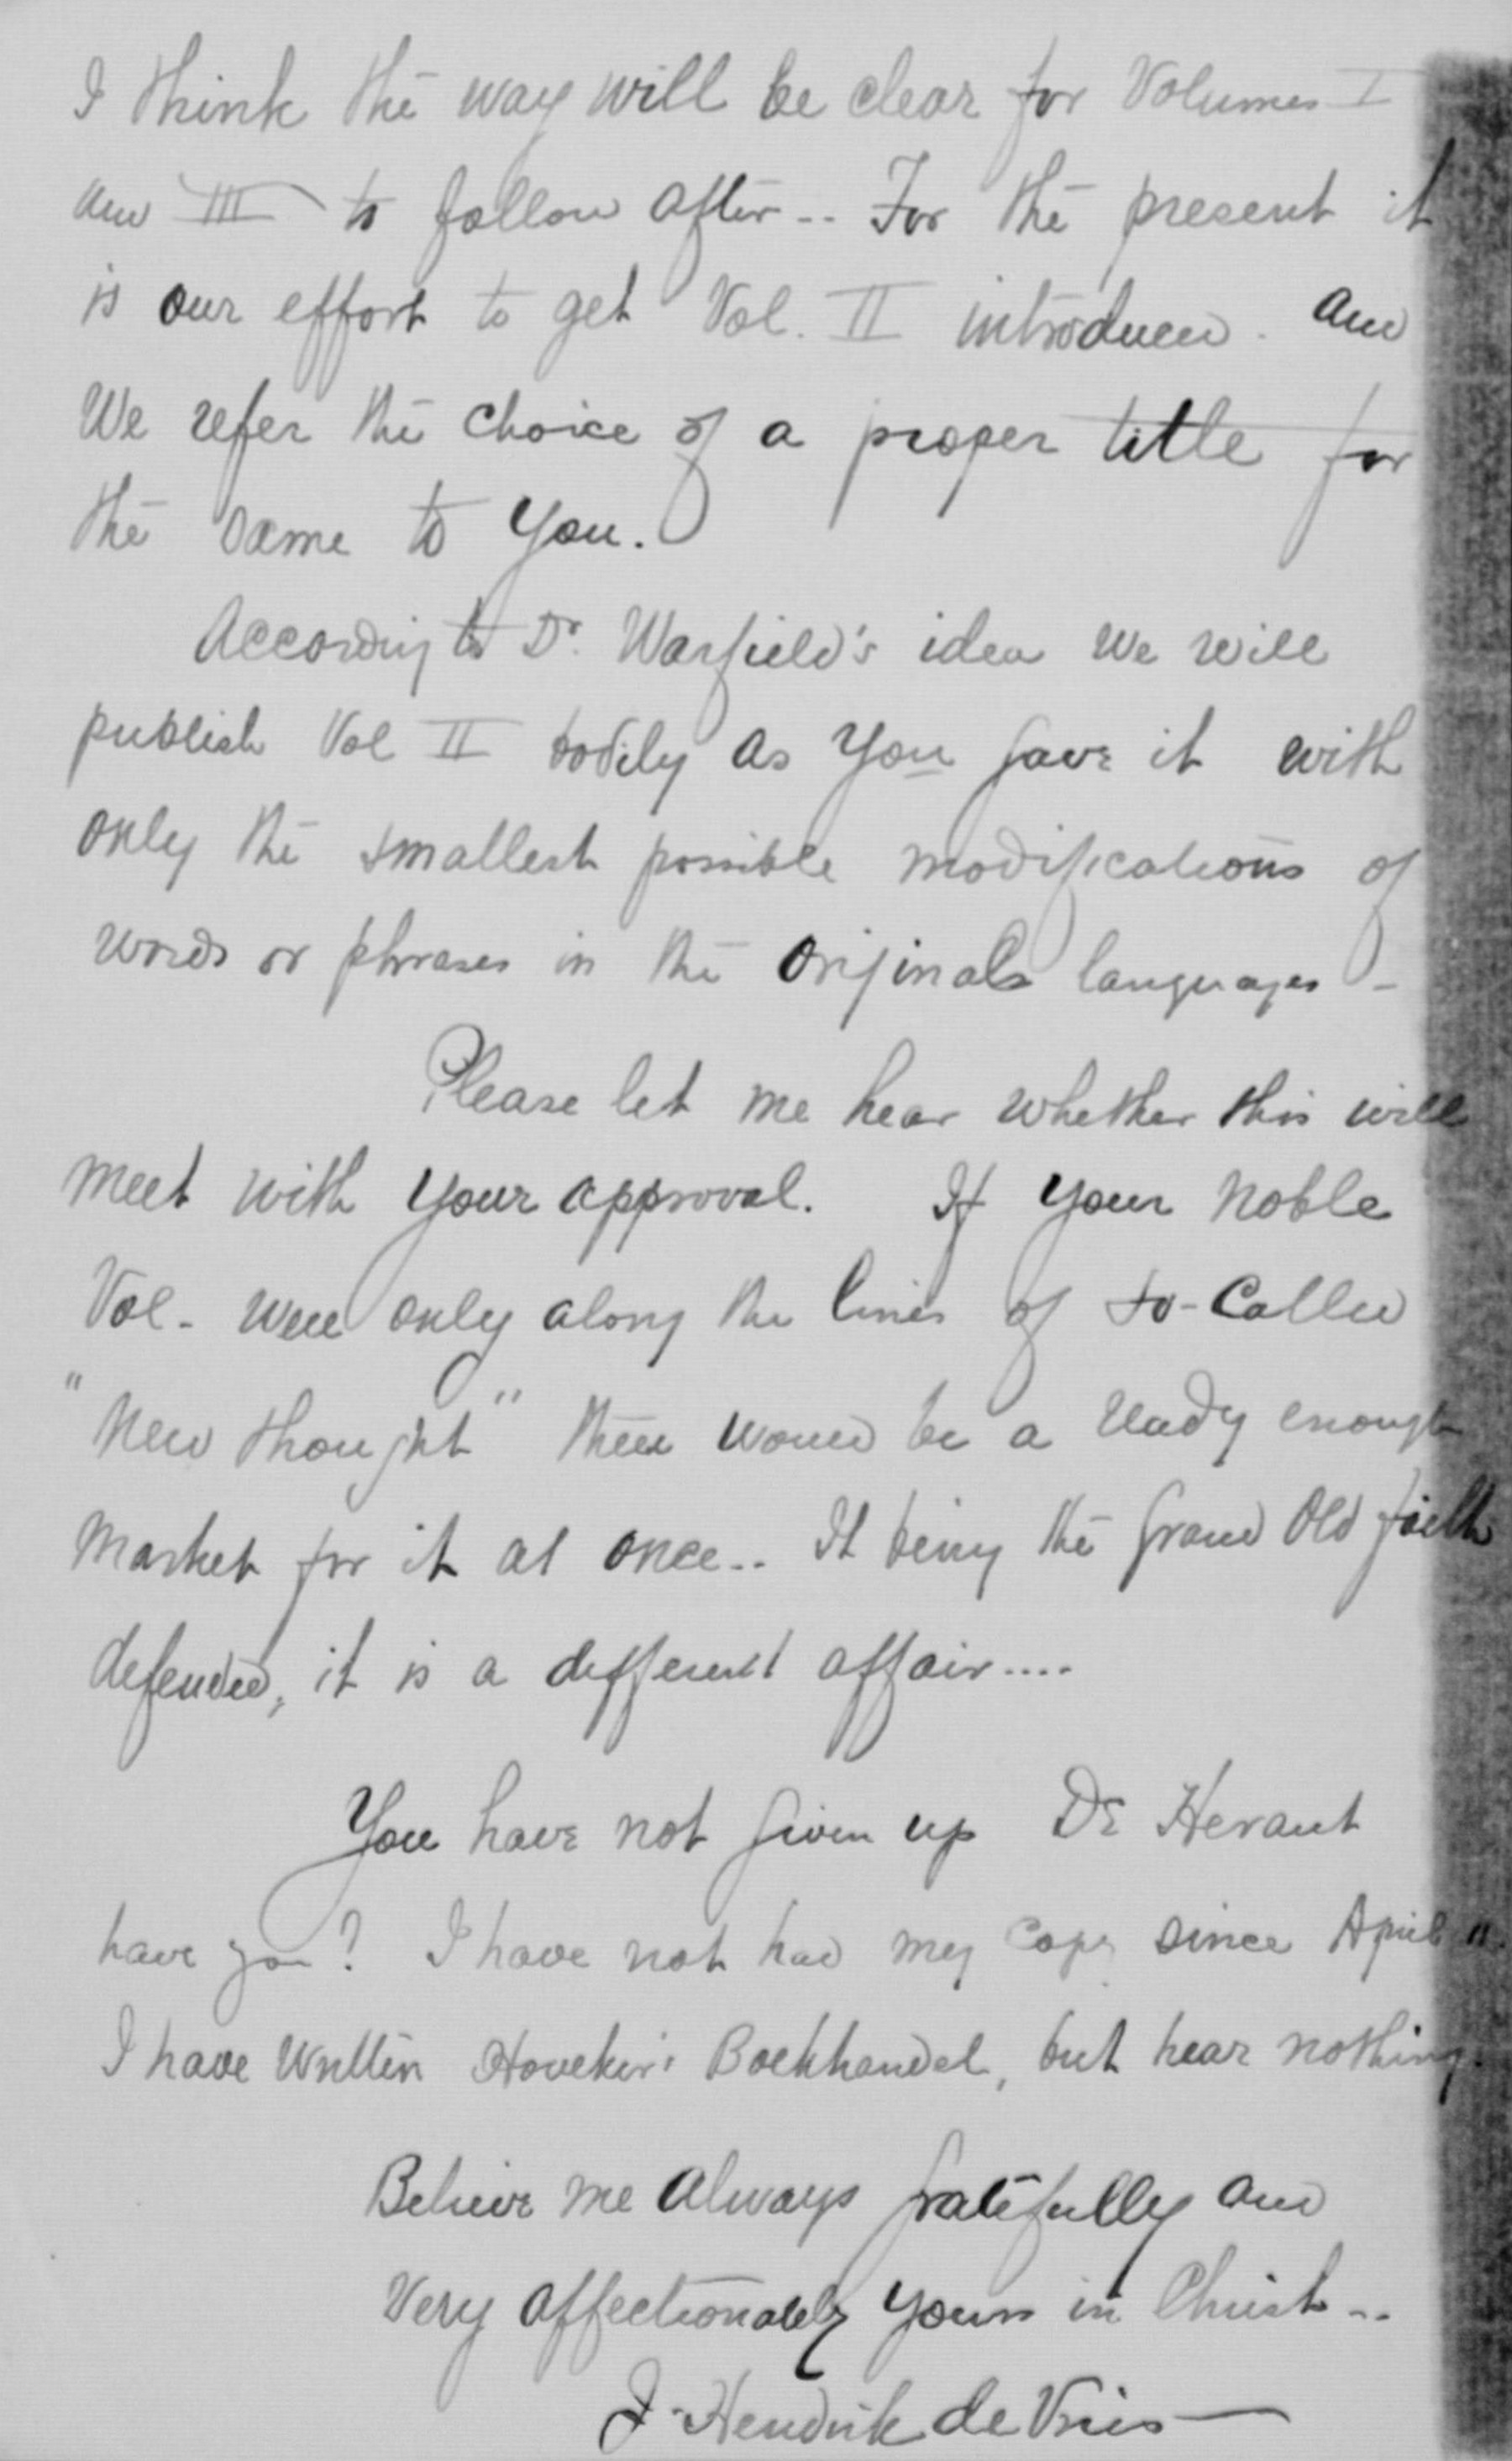 I think the way will be clear for Volumes I
and III to follow after -- For the present it
is our effort to get Vol. II introduced. And
We refer the choice of a proper title for
the same to you.
According to Dr. Warfield's idea we will
publish Vol II bodily as you gave it with
only the smallest possible modifications of
words or phrases in the originals languages -
Please let me hear whether this will
meet with your approval. If your noble
Vol. were only along the lines of so-called
"New thought" there would be a ready enough
market for it at once -- It being the grand Old faith
defended, it is a different affair....
You have not given up De Heraut
have you? I have not had my copy since April 11.
I have written Höveker's Boekhandel, but hear nothing.
Believe me always gratefully and
Very affectionately yours in Christ --
J. Hendrik de Vries